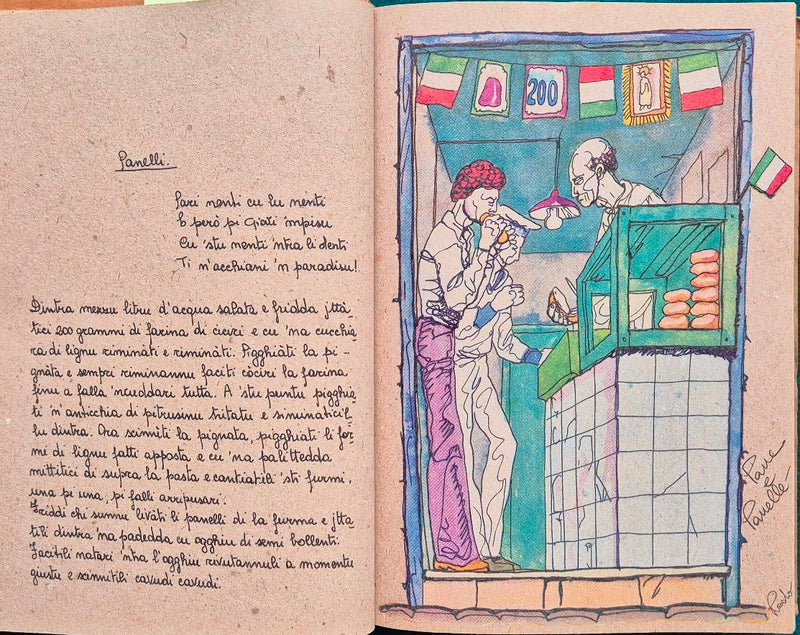 Panelli.
Pari nenti cu lu nenti
E però pi Giari 'mpisu
Cu 'stu nenti 'ntra li denti
Ti n'acchiani 'n paradisu!
Dintra menzu litru d'acqua salata e fridda jttà-
tici 200 grammi di farina di ciciri e cu 'na cucchia-
ra di lignu riminati e riminati. Pigghiàti la pi-
gnata e sempri riminannu faciti còciri la farina
finu a falla 'ncuddari tutta. A 'stu puntu pigghia-
ti n'anticchia di pitrusinu tritatu e siminaticil-
lu dintra. Ora scinniti la pignata, pigghiati li for-
mi di lignu fatti apposta e cu 'na palittedda
mittitici di supra la pasta e canciatili 'sti furmi,
una pi una, pi falli arripusari.
Friddi chi sunnu livàti li panelli di la furma e jtta-
tili dintra 'na padedda cu ogghiu di semi bollenti.
Facitili natari 'ntra l'ogghiu rivutannuli a momentu
giustu e scinnitili cavudi cavudi.
200
Pane
e
Panelle